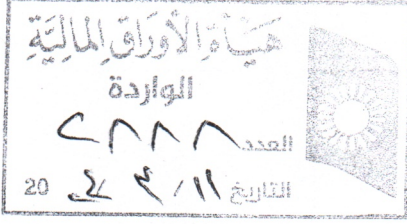 هَيْأَةُ الأَوْرَاقِ المَالِيَّةِ
الواردة
العدد ٢٨٨٨
التاريخ ١١ / ٤ / 20